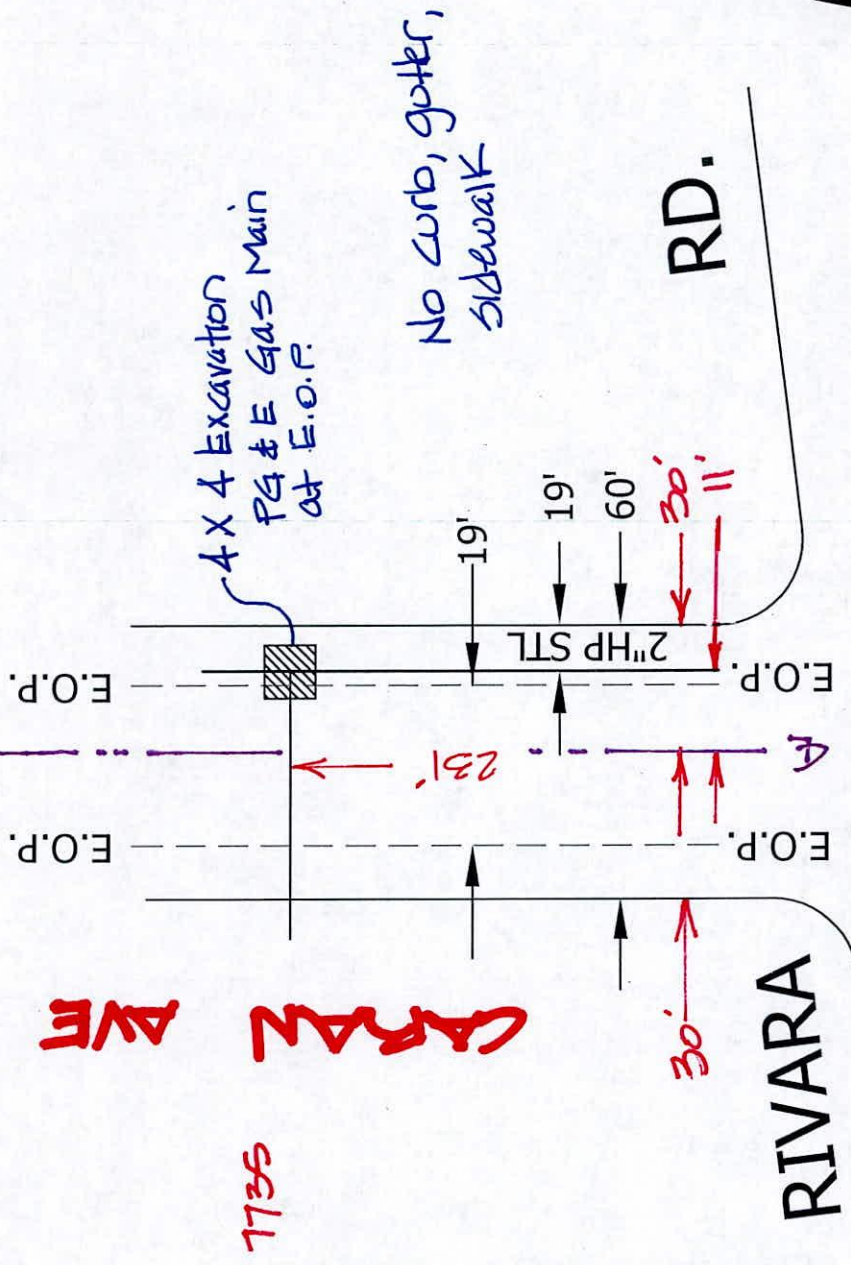 4 X 4 Excavation
PG & E Gas Main
at E.O.P.
No curb, gutter,
sidewalk
E.O.P.
E.O.P.
19'
19'
60'
30'
11'
2"HP STL
231'
E.O.P.
E.O.P.
30'
AVE
7735
RIVARA
RD.